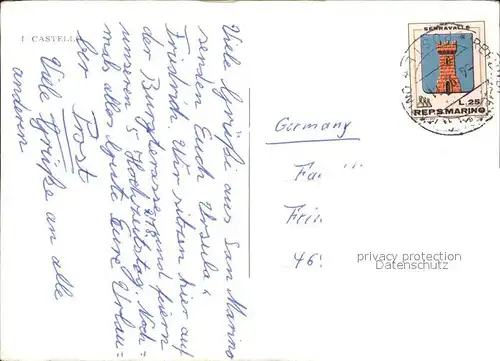 I CASTELLO
Viele Grüße aus San Marino
senden Euch Ursula &
Friedrich. Wir sitzen hier auf
der Burgterrasse und feiern
unseren 5. Hochzeitstag. Noch=
mals alles Gute Eure Urlau=
ber
Prost
Viele Grüße an alle
anderen
SERRAVALLE
L.25
REP.S.MARINO
Germany
Fa
46
privacy protection
Datenschutz